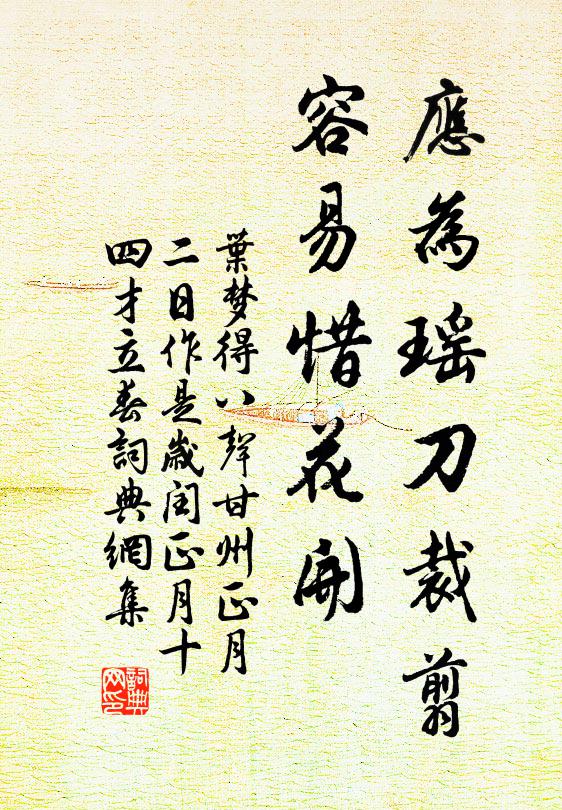 應為瑶刀裁翦
容易惜花開
葉梦得八聲甘州正月
二日作是歲閏正月十
四才立春詞典網集
詞典
网印